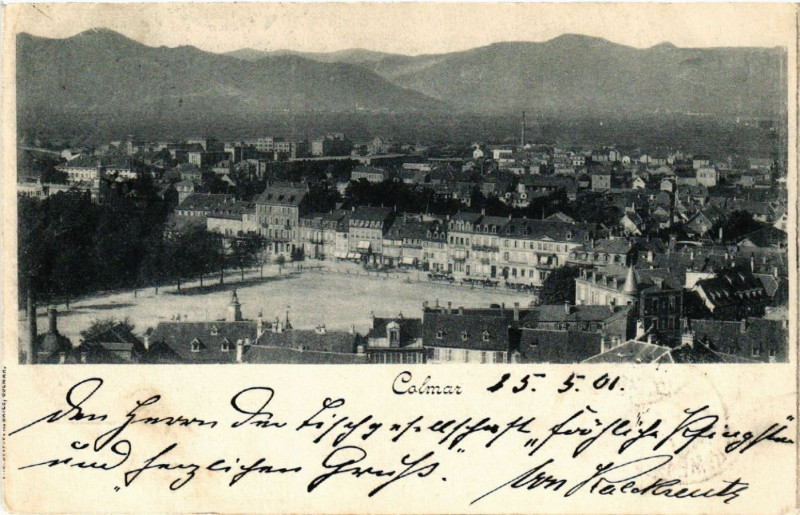 Colmar 25. 5. 01.
Den Herrn der Tischgesellschaft „fröhliche Pfingsten"
und „herzlichen Gruß".
Von Kalckreuth